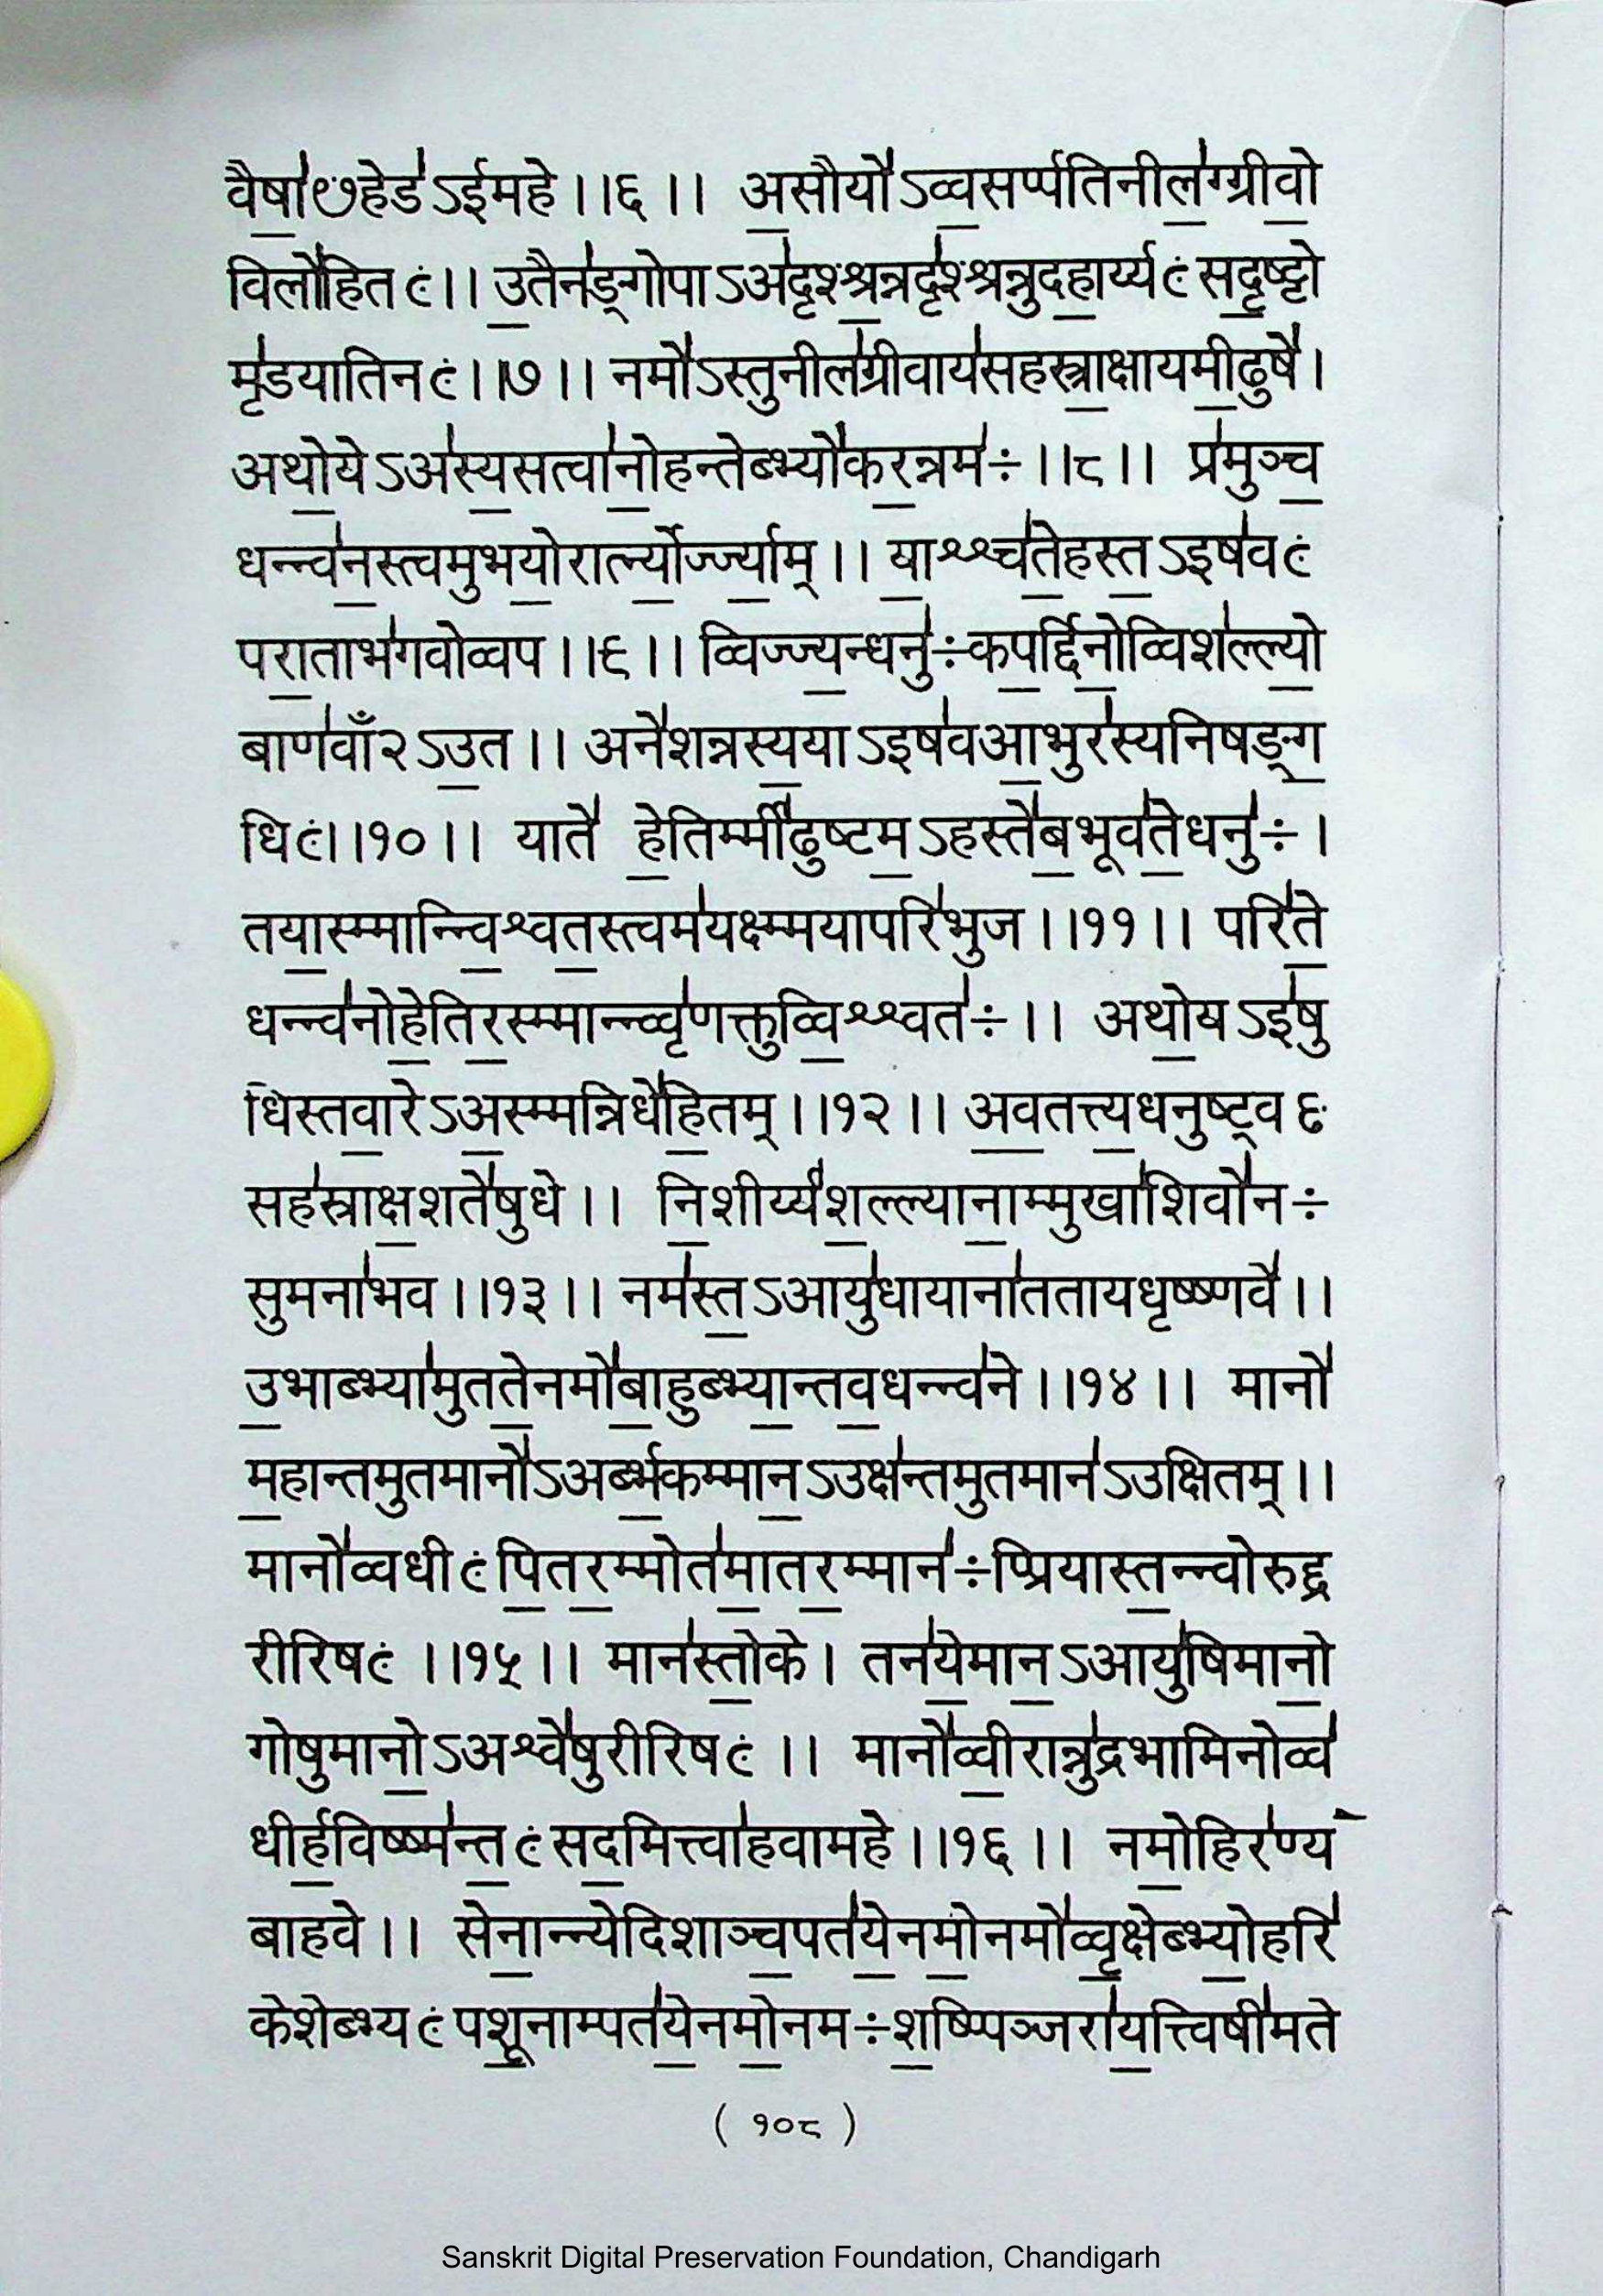 वै॒षा॑ᳬहेड॑ऽईमहे ।।६ ।। अ॒सौयो॑ऽव्व॒सर्प्पतिनील॒॑ग्ग्रीवो॒
विलो॑हित ः।। उ॒तैन॑ङ्गोपाऽअ॑दृश्श्र॒न्नदृ॑श्श्रन्नुदहा॒र्य्यः सदृ॒ष्ट्टो
मृ॑डयातिनः।।७ ।। नमो॑ऽस्तुनील॑ग्रीवाय॑सहस्त्रा॒क्षायमी॒ढुषे॑।
अथो॒येऽअ॑स्य॒सत्वा॑नो॒हन्तेब्भ्यो॑कर॒न्नम॑÷ ।।८ ।। प्र॑मुञ्च॒
धन्न्व॑न॒स्त्वमुभयो॒रार्त्न्यो॒र्ज्ज्या॒म् ।। या॒श्श्च॑ते॒हस्त॒ऽइष॑वः
परा॒ताभ॑गवोव्वप ।।९ ।। व्विज्ज्य॒न्धनु॑÷कप॒र्द्दिनो॒व्विश॑ल्ल्यो॒
बाण॑वाँ२ऽउ॒त ।। अने॑शन्नस्य॒याऽइष॑वआ॒भुर॑स्यनिषङ्ग॒
धिः।।१० ।। याते॑ हे॒तिर्म्मी॑ढुष्टम॒ऽहस्ते॑ब॒भूव॑ते॒धनु॑÷ ।
तया॒स्म्मान्न्वि॒श्वत॒स्त्वम॑यक्ष्म्मयापरि॑भुज ।।११ ।। परि॑ते॒
धन्न्व॑नोहे॒तिर॒स्म्मान्न्वृ॑णक्तुव्वि॒श्श्वत॑÷ ।। अथो॒यऽइ॑षु
धिस्तवा॒रेऽअ॒स्म्मन्निधे॑हि॒तम् ।।१२ ।। अ॒व॒तत्त्य॒धनुष्ट्वᳬ
सह॑स्राक्ष॒शते॑षुधे ।। नि॒शीर्य्य॑श॒ल्ल्याना॒म्मुखा॑शिवो॑न÷
सुमना॑भव ।।१३ ।। नम॑स्त॒ऽआयु॑धायाना॑ततायधृष्ष्णवे॑ ।।
उ॒भाब्भ्या॑मुतते॒नमो॑बा॒हुब्भ्या॒न्तव॒धन्न्व॑ने ।।१४ ।। मानो॑
म॒हान्तमुतमानो॑ऽअर्ब्भ॒कम्मान॒ऽउक्ष॑न्तमुतमान॑ऽउक्षितम् ।।
मानो॑व्वधीः पि॒तर॒म्मोत॑मा॒तर॒म्मान॑÷प्प्रियास्त॒न्न्वोरुद्द्र
रीरिषः ।।१५ ।। मान॑स्तो॒के । तन॑ये॒मान॒ऽआयु॑षिमानो॒
गोषुमानो॒ऽअश्वे॑षुरीरिषः ।। मानो॑व्वी॒रान्नु॑द्रभामिनोव्व॑
धीर्ह॒विष्ष्म॑न्त॒ः सद॒मित्त्वा॑हवामहे ।।१६ ।। नमो॒हिर॑ण्य
बाहवे ।। सेना॒न्न्येदिशाञ्च॒पत॑ये॒नमो॒नमो॑व्वृ॒क्षेब्भ्यो॒हरि॑
केशेब्भ्यः पशू॒नाम्पत॑ये॒नमो॒नम÷श॒ष्प्पिञ्जरा॑य॒त्त्विषी॑मते
( १०८ )
Sanskrit Digital Preservation Foundation, Chandigarh